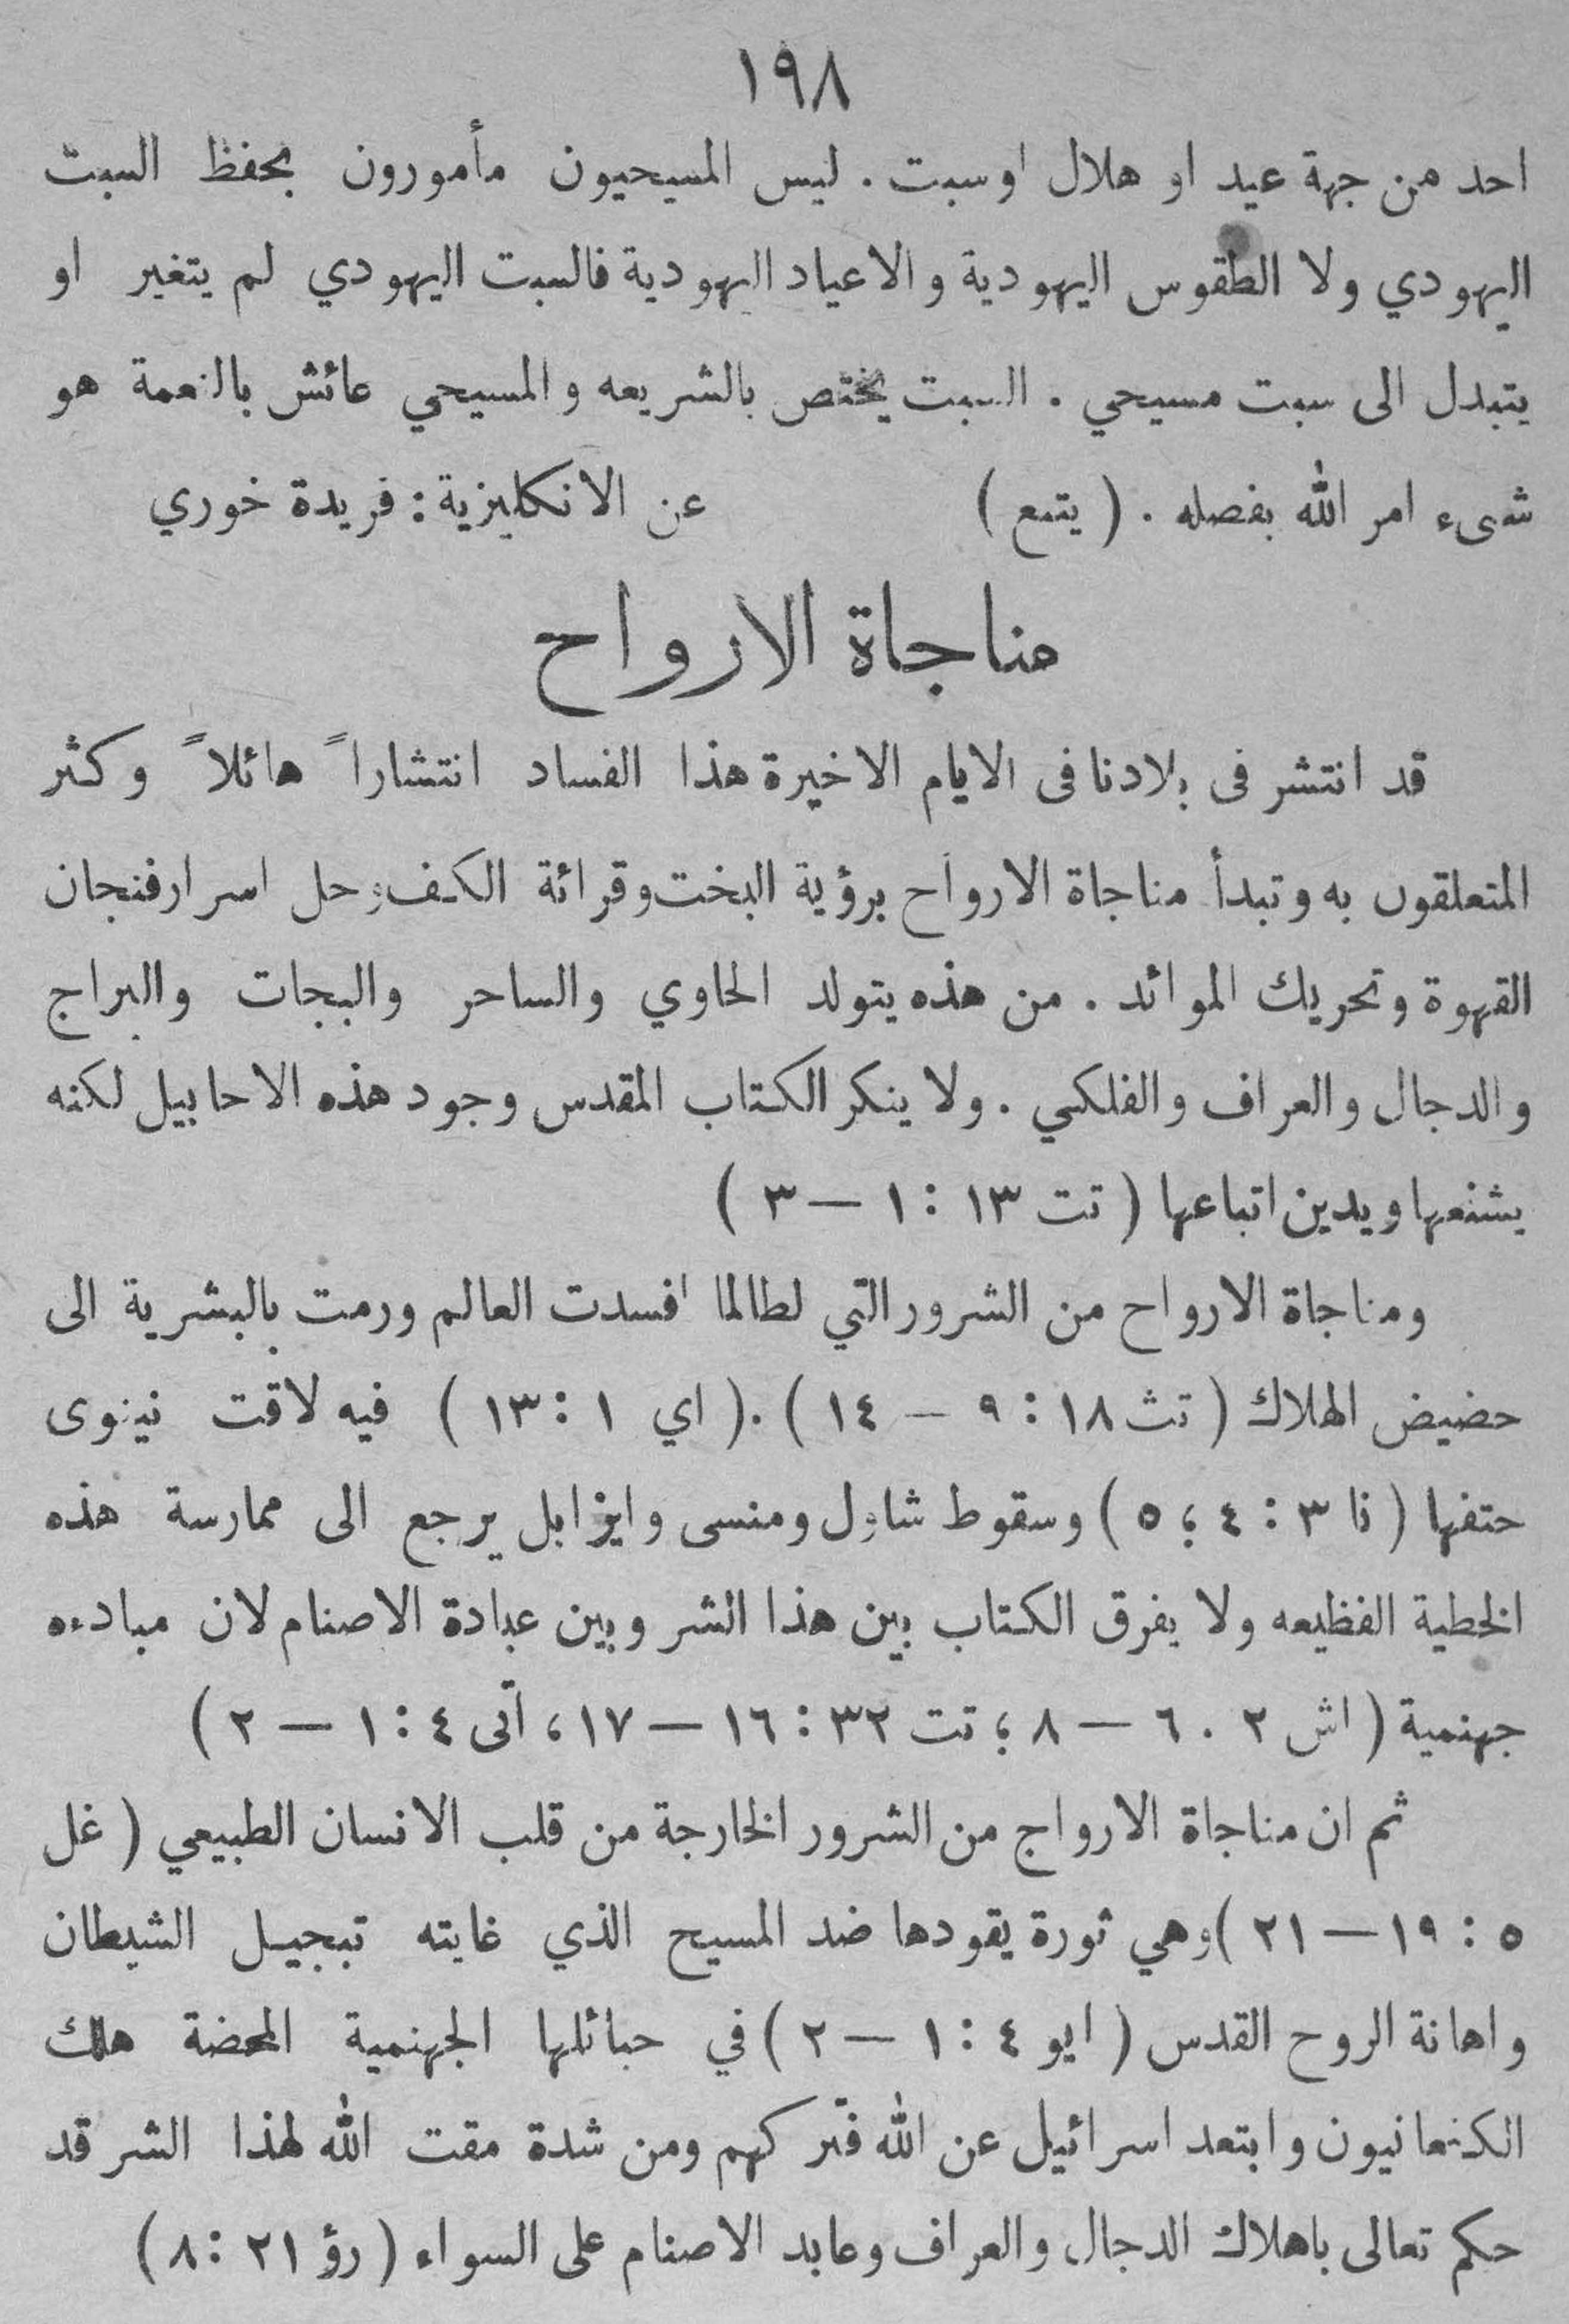 ١٩٨
احد من جهة عيد او هلال اوسبت . ليس المسيحيون مأمورون بحفظ السبت
اليهودي ولا الطقوس اليهودية والاعياد اليهودية فالسبت اليهودي لم يتغير او
يتبدل الى سبت مسيحي . السبت يختص بالشريعه والمسيحي عائش بالنعمة هو
شىء امر الله بفصله . ( يتبع ) عن الانكليزية : فريدة خوري
مناجاة الارواح
قد انتشر فى بلادنا فى الايام الاخيرة هذا الفساد انتشاراً هائلاً وكثر
المتعلقون به وتبدأ مناجاة الارواح برؤية البخت وقرائة الكف وحل اسرار فنجان
القهوة وتحريك الموائد . من هذه يتولد الحاوي والساحر والبجات والبراج
والدجال والعراف والفلكي . ولا ينكر الكتاب المقدس وجود هذه الاحابيل لكنه
يشنعها ويدين اتباعها ( تت ١٣ : ١ — ٣ )
ومناجاة الارواح من الشرور التي لطالما افسدت العالم ورمت بالبشرية الى
حضيض الهلاك ( تث ١٨ : ٩ – ١٤ ) . ( اي ١ : ١٣ ) فيه لاقت نينوى
حتفها ( نا ٣ : ٤ ؛ ٥ ) وسقوط شاول ومنسى وايزابل يرجع الى ممارسة هذه
الخطية الفظيعه ولا يفرق الكتاب بين هذا الشر وبين عبادة الاصنام لان مبادءه
جهنمية ( اش ٢ . ٦ — ٨ ؛ تت ٣٢ : ١٦ — ١٧ ، اتى ٤ : ١ — ٢ )
ثم ان مناجاة الارواج من الشرور الخارجة من قلب الانسان الطبيعي ( غل
٥ : ١٩ — ٢١ ) وهي ثورة يقودها ضد المسيح الذي غايته تبجيل الشيطان
واهانة الروح القدس ( ايو ٤ : ١ — ٢ ) في حبائلها الجهنمية المحضة هلك
الكنعانيون وابتعد اسرائيل عن الله فتركهم ومن شدة مقت الله لهذا الشر قد
حكم تعالى باهلاك الدجال والعراف وعابد الاصنام على السواء ( رؤ ٢١ : ٨ )